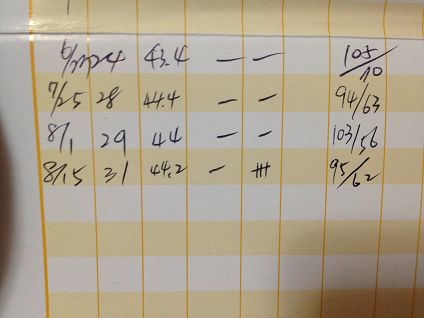 24 43.4 — — 105/
7/25 28 44.4 — — 94/63
8/1 29 44 — — 103/56
8/15 31 44.2 — 卅 95/62